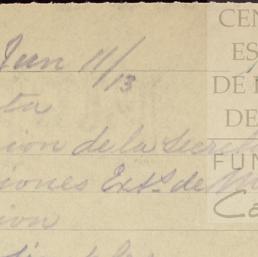 Jun 11/13
ta
ion de la Secret
iones Exts. de M
ion
CEN
ES
DE
DE
FUN
Ca